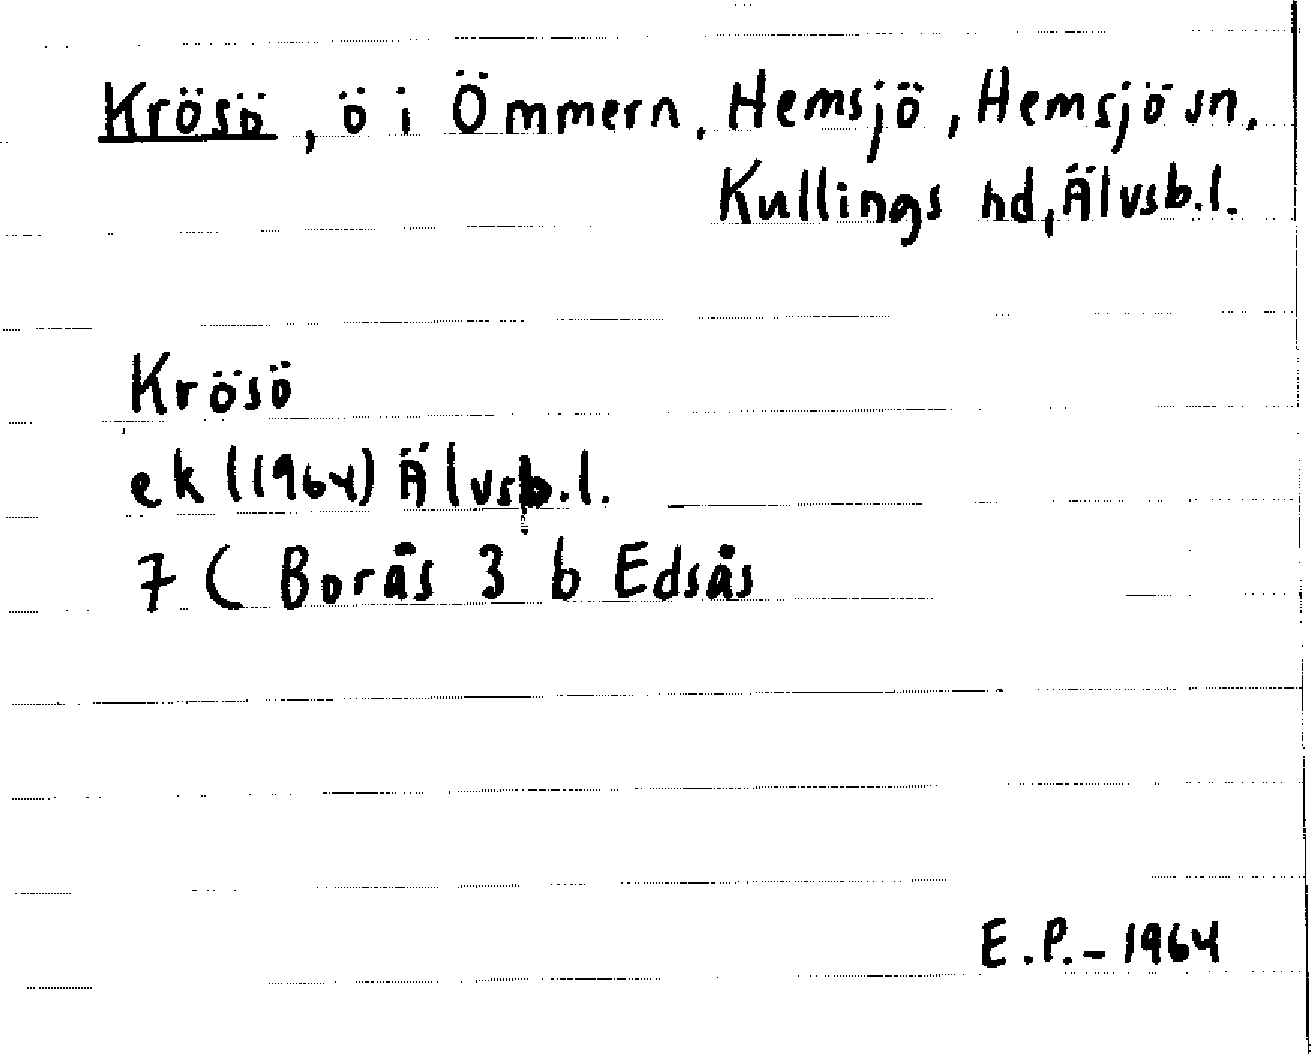 Krösö, ö i Ömmern, Hemsjö, Hemsjö sn,
Kullings hd, Älvsb.l.
Krösö
ek (1964) Älvsb.l.
7 C Borås 3 b Edsås
E.P. - 1964